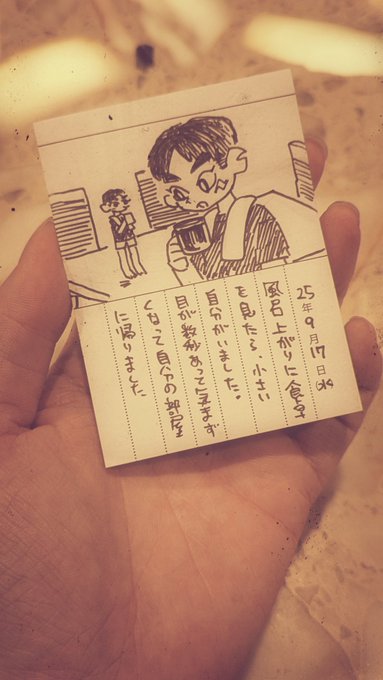 25年9月17日(水)
風呂上がりに食卓
を見たら、小さい
自分がいました。
目が数秒あって気まず
くなって自分の部屋
に帰りました。